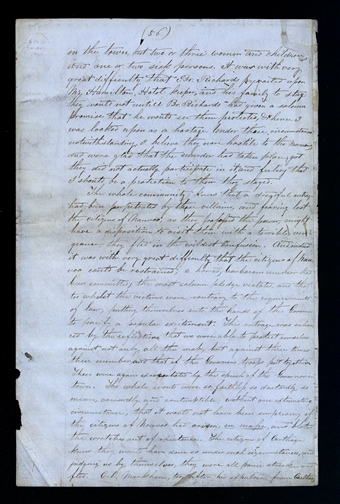 (56)
in the town but two or three women and children
and one or two sick persons. It was with very
great difficulty that Dr. Richards prevailed upon
Mr. Hamilton, Hotel keeper, and his family to stay
they would not until Dr Richards had given a solemn
promise that he would see them protected, & hence I
was looked upon as a hostage. Under these circumstances
notwithstanding, I believe they were hostile to the
and were glad that the murder had taken place, yet
they did not actually participate in it and feeling that
I should be a protection to them they staid.
The whole community knew that a dreadful outrage
had been perpetrated by those villains, and fearing lest
the citizens of Nauvoo, as they possessed the power, might
have a disposition to visit them with a terrible ven-
geance, they fled in the wildest confusion. And
it was with very great difficulty that the citizens of Nau-
voo could be restrained; a horrid, barbarous murder had
been committed, the most solemn pledge violated, and
whilst the victims were, contrary to the requirements
of law, putting themselves into the hands of the
to pacify a popular excitement. This outrage was
by the reflection that we were able to protect ourselves
against not only all the mob, but against three times
their number and that of the Governor's troops put together.
These were again exasperated by the speech of the Governor in
town. The whole events were so faithless, so dastardly, so
mean, cowardly and contemptible, without one extenuating
circumstance, that it would not have been surprising if
the citizens of Nauvoo had arisen, en masse, and blotted
the wretches out of existence. The citizens of Carthage
knew they would have done so under such circumstances, and
judging us by themselves, they were all panic stricken and
fled. Col. Markham, too, after his expulsion from Carthage